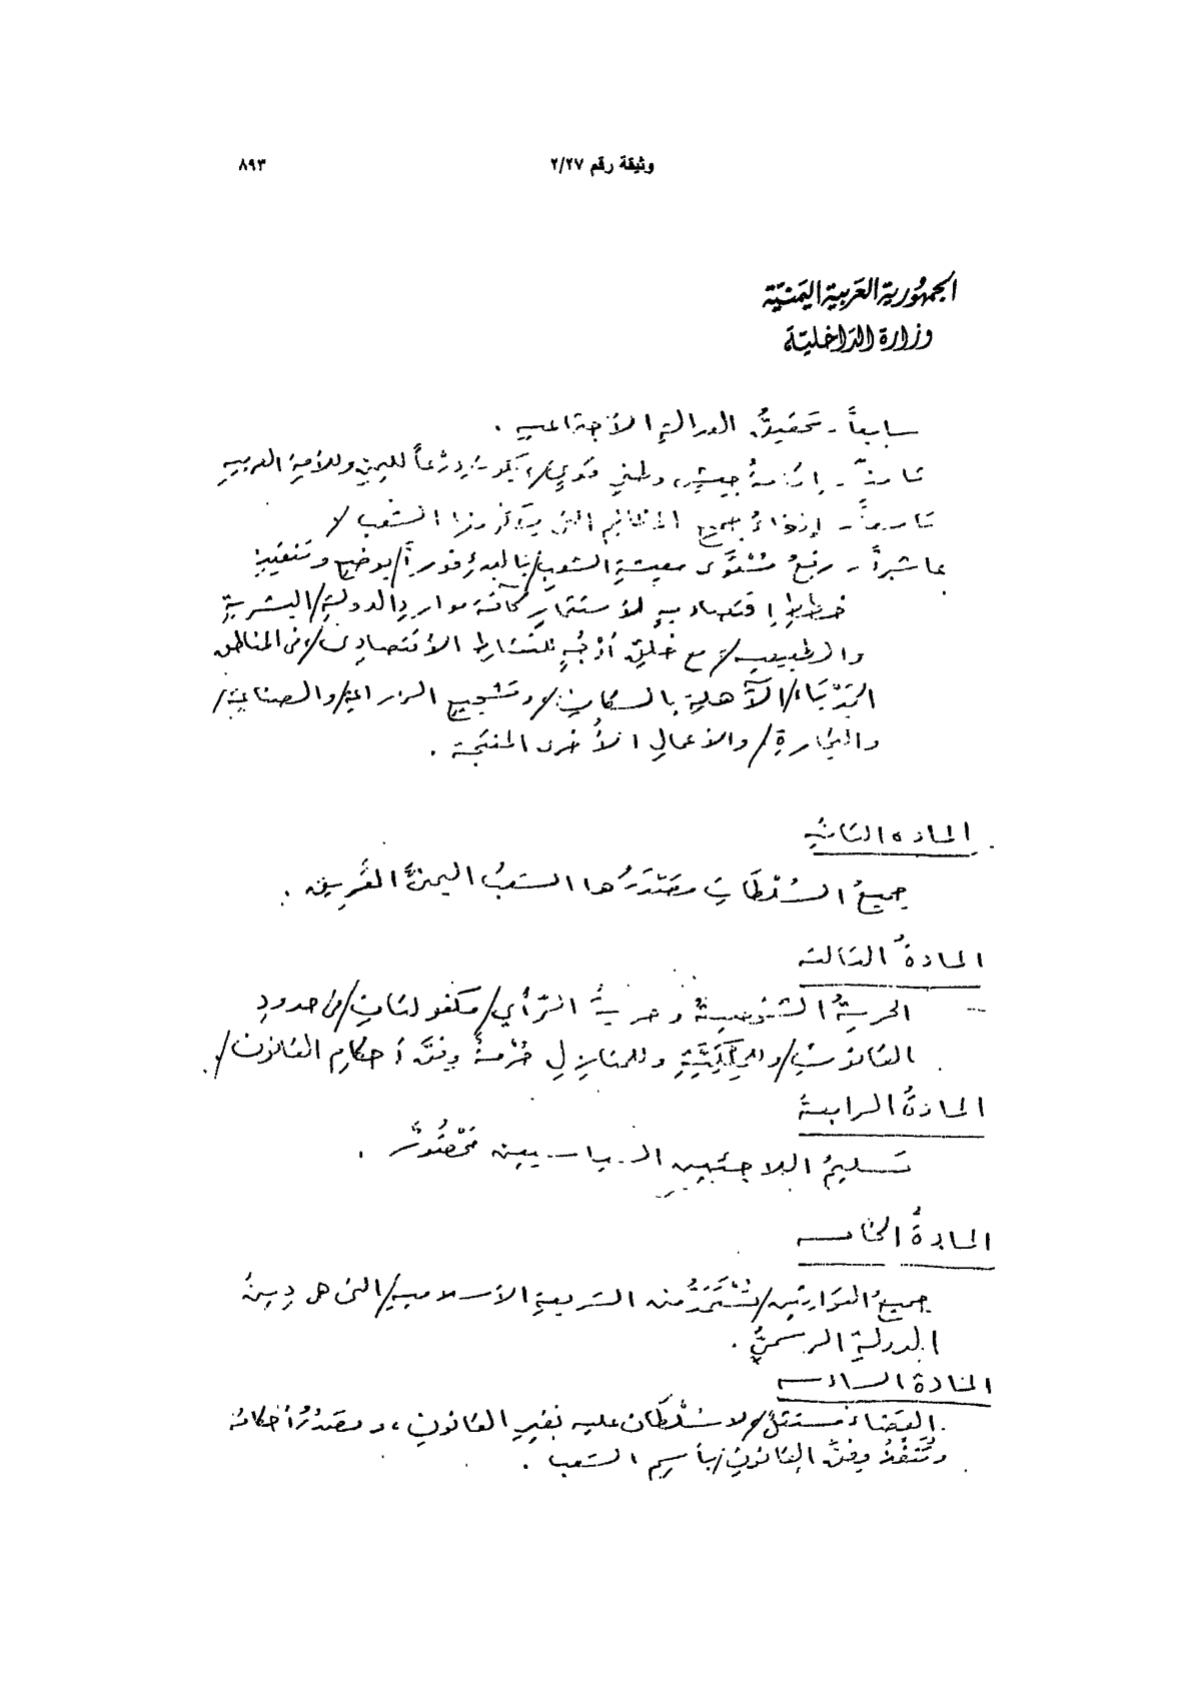 وثيقة رقم ٢/٢٧ ٨٩٣
الجمهورية العربية اليمنية
وزارة الداخلية
سابعاً - تحقيقُ العدالةِ الاجتماعيه .
ثامناً - إقامةُ جيشٍ وطني قويٍ/ يكون درعاً لليمنِ وللأمةِ العربيه
تاسعاً - إزالةُ جميع المظالم التى يتذمر منها الشعب /
عاشراً - رفعُ مُسْتَوَى معيشةِ الشعبِ/بالبدءِ فوراً/بوضعِ وتنفيذِ
خططٍ إقتصاديهٍ لأستثمارِ كآفةِ مواردِ الدولةِ/البشريةِ
والطبيعيه/ مع خلقِ أوْجُهٍ للنشاطِ الأقتصادِى/فى المناطق
الجَدْبَاء/الآهلةِ بالسكانِ/وتشجيعِ الزراعةِ/والصناعةِ/
والتجارةِ/والأعمالِ الأُخرى المنتجة .
المادة الثانية
جميعُ السُلْطَاتِ مصْدَرُها الشعبُ اليمنىُّ العَريق .
المادةُ الثالثه
الحريةُ الشخصيةُ وحريةُ الرّأي/مكفولتانِ/فى حدودِ
القانونِ/وللمِلْكِيَّةِ وللمنازلِ حُرْمةٌ وِفْقَ أحكامِ القانون/.
المادةُ الرابعةُ
تسليمُ اللاجئينِ السياسيين محْظُورٌ .
المادةُ الخامسه
جميعُ القوانينِ/تُسْتَمَدُّ منَ الشريعةِ الأسلاميهِ/التى هى دينُ
الدولةِ الرسمىُّ .
المادة السادسه
القضاءُ مستقلٌ/ولا سُلْطَانَ عليه بغيرِ القانونِ ، وتصْدُرُ أحكامُهُ
وتُنَفَّذُ وِفْقَ القانونِ/بأسمِ الشعب .